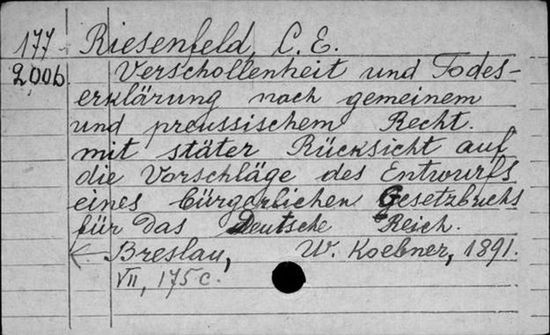 177 Riesenfeld, C. E.
2006 Verschollenheit und Todes-
erklärung nach gemeinem
und preussischem Recht.
mit stäter Rücksicht auf
die Vorschläge des Entwurfs
eines bürgerlichen Gesetzbuchs
für das Deutsche Reich.
Breslau, W. Koebner, 1891.
VII, 175 c.